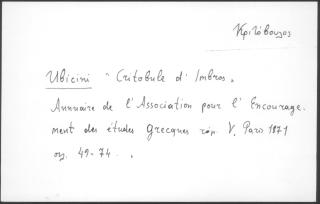 Κριτόβουλος
Ubicini "Critobule d'Imbros"
Annuaire de l'Association pour l'Encourage-
ment des études Grecques τόμ. V, Paris 1871
σσ. 49-74.